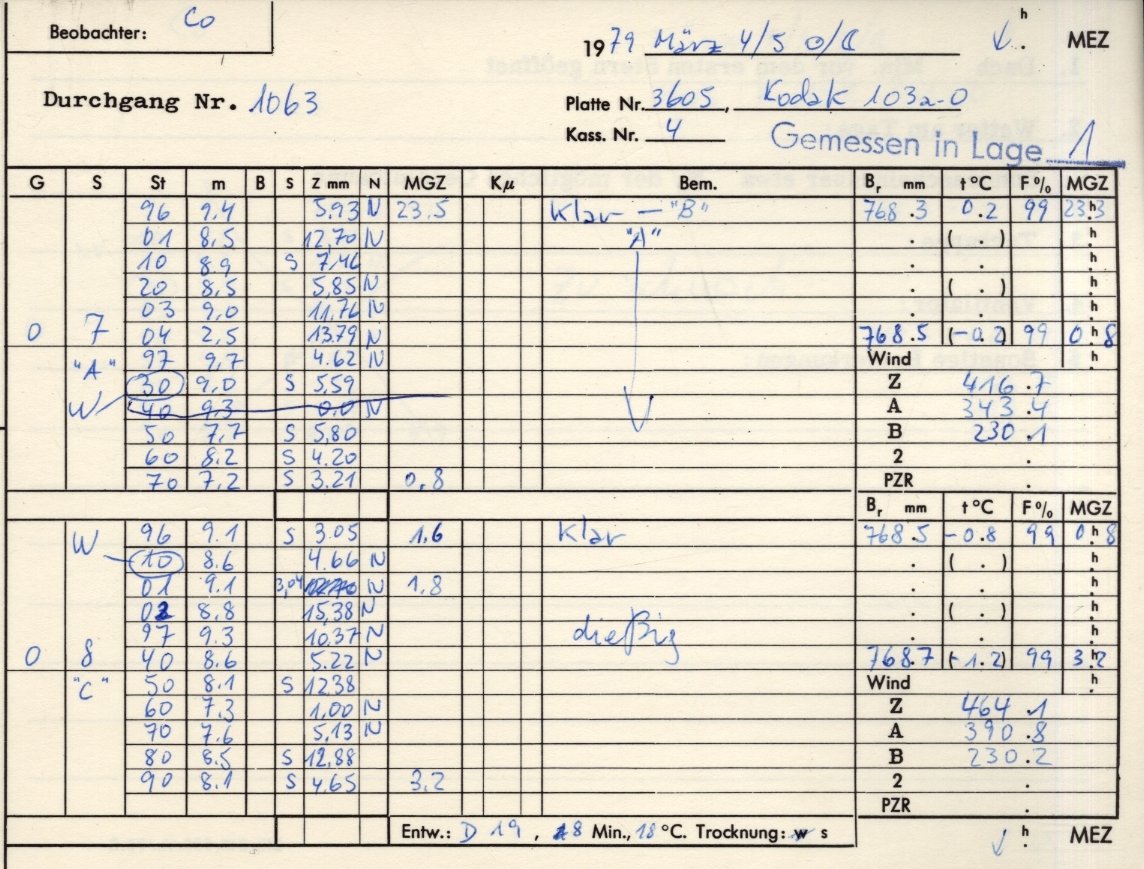 Beobachter: Co
1979 März 4/5 0/C h . MEZ
Durchgang Nr. 1063
Platte Nr. 3605, Kodak 103a-O
Kass. Nr. 4 Gemessen in Lage 1
G S St m B S Z mm N MGZ Kμ Bem. Br mm t°C F% MGZ
96 9.4 5.93 N 23.5 Klar – "B" 768.3 0.2 99 23h3
01 8,5 12,70 N "A" ( . ) h
10 8.9 S 7,46 . . h
20 8,5 5,85 N . ( . ) h
03 9,0 11,76 N . . h
0 7 04 2,5 13.79 N 768.5 (-0.2) 99 0h8
"A" 97 9,7 4.62 N Wind h
30 9,0 S 5,59 Z 416.7
W 40 9,3 0,0 N A 343.4
50 7,7 S 5,80 B 230.1
60 8.2 S 4.20 2 .
70 7,2 S 3.21 0,8 PZR .
Br mm t°C F% MGZ
W 96 9.1 S 3.05 1,6 Klar 768.5 -0.8 99 0h8
10 8.6 4.66 N . ( . ) h
01 9.1 3,04 N 1,8 . . h
02 8,8 15,38 N . ( . ) h
97 9.3 10,37 N dießig . . h
0 8 40 8.6 5.22 N 768.7 (-1.2) 99 3h2
"C" 50 8.1 S 12.38 Wind h
60 7,3 1,00 N Z 464.1
70 7,6 5,13 N A 390.8
80 8,5 S 12,88 B 230.2
90 8.1 S 4,65 3,2 2 .
PZR .
Entw.: D 19, 8 Min., 18 °C. Trocknung: w s h . MEZ